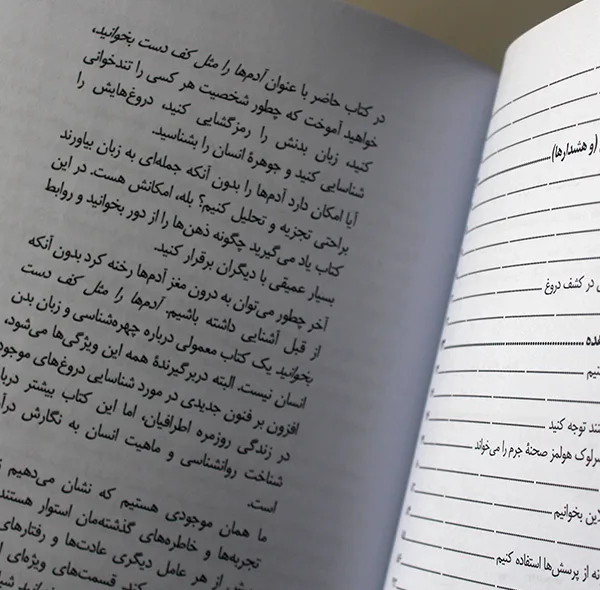 در کتاب حاضر با عنوان آدم‌ها را مثل کف دست بخوانید،
خواهید آموخت که چطور شخصیت هر کسی را تندخوانی
کنید، زبان بدنش را رمزگشایی کنید، دروغ‌هایش را
شناسایی کنید و جوهرهٔ انسان را بشناسید.
آیا امکان دارد آدم‌ها را بدون آنکه جمله‌ای به زبان بیاورند
براحتی تجزیه و تحلیل کنیم؟ بله، امکانش هست. در این
کتاب یاد می‌گیرید چگونه ذهن‌ها را از دور بخوانید و روابط
بسیار عمیقی با دیگران برقرار کنید.
آخر چطور می‌توان به درون مغز آدم‌ها رخنه کرد بدون آنکه
از قبل آشنایی داشته باشیم. آدم‌ها را مثل کف دست
بخوانید یک کتاب معمولی درباره چهره‌شناسی و زبان بدن
انسان نیست. البته دربرگیرندهٔ همه این ویژگی‌ها می‌شود،
افزون بر فنون جدیدی در مورد شناسایی دروغ‌های موجود
در زندگی روزمره اطرافیان، اما این کتاب بیشتر
شناخت روانشناسی و ماهیت انسان به نگارش
است.
ما همان موجودی هستیم که نشان می‌دهیم
تجربه‌ها و خاطره‌های گذشته‌مان استوار هستند
از هر عامل دیگری عادت‌ها و رفتارهای
قسمت‌های ویژه‌ای
(و هشدارها)
در کشف دروغ
توجه کنید
هولمز صحنهٔ جرم را می‌خواند
بخوانیم
از پرسش‌ها استفاده کنیم